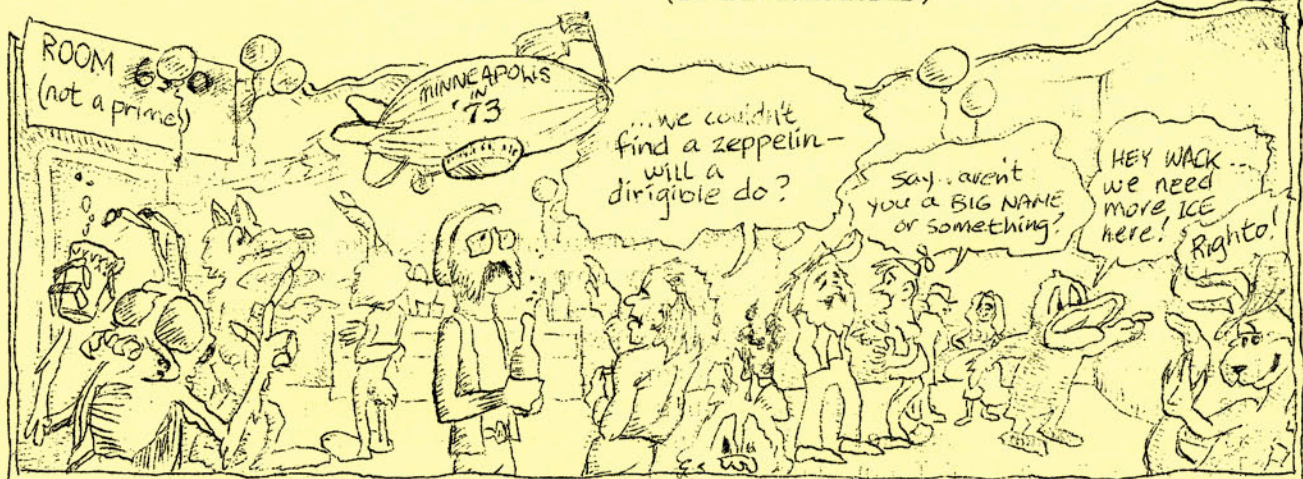 ROOM
(not a prime)
MINNEAPOLIS
IN
'73
...we couldn't
find a zeppelin—
will a
dirigible do?
Say..aren't
you a BIG NAME
or something?
HEY WACK...
we need
more ICE
here!
Righto!